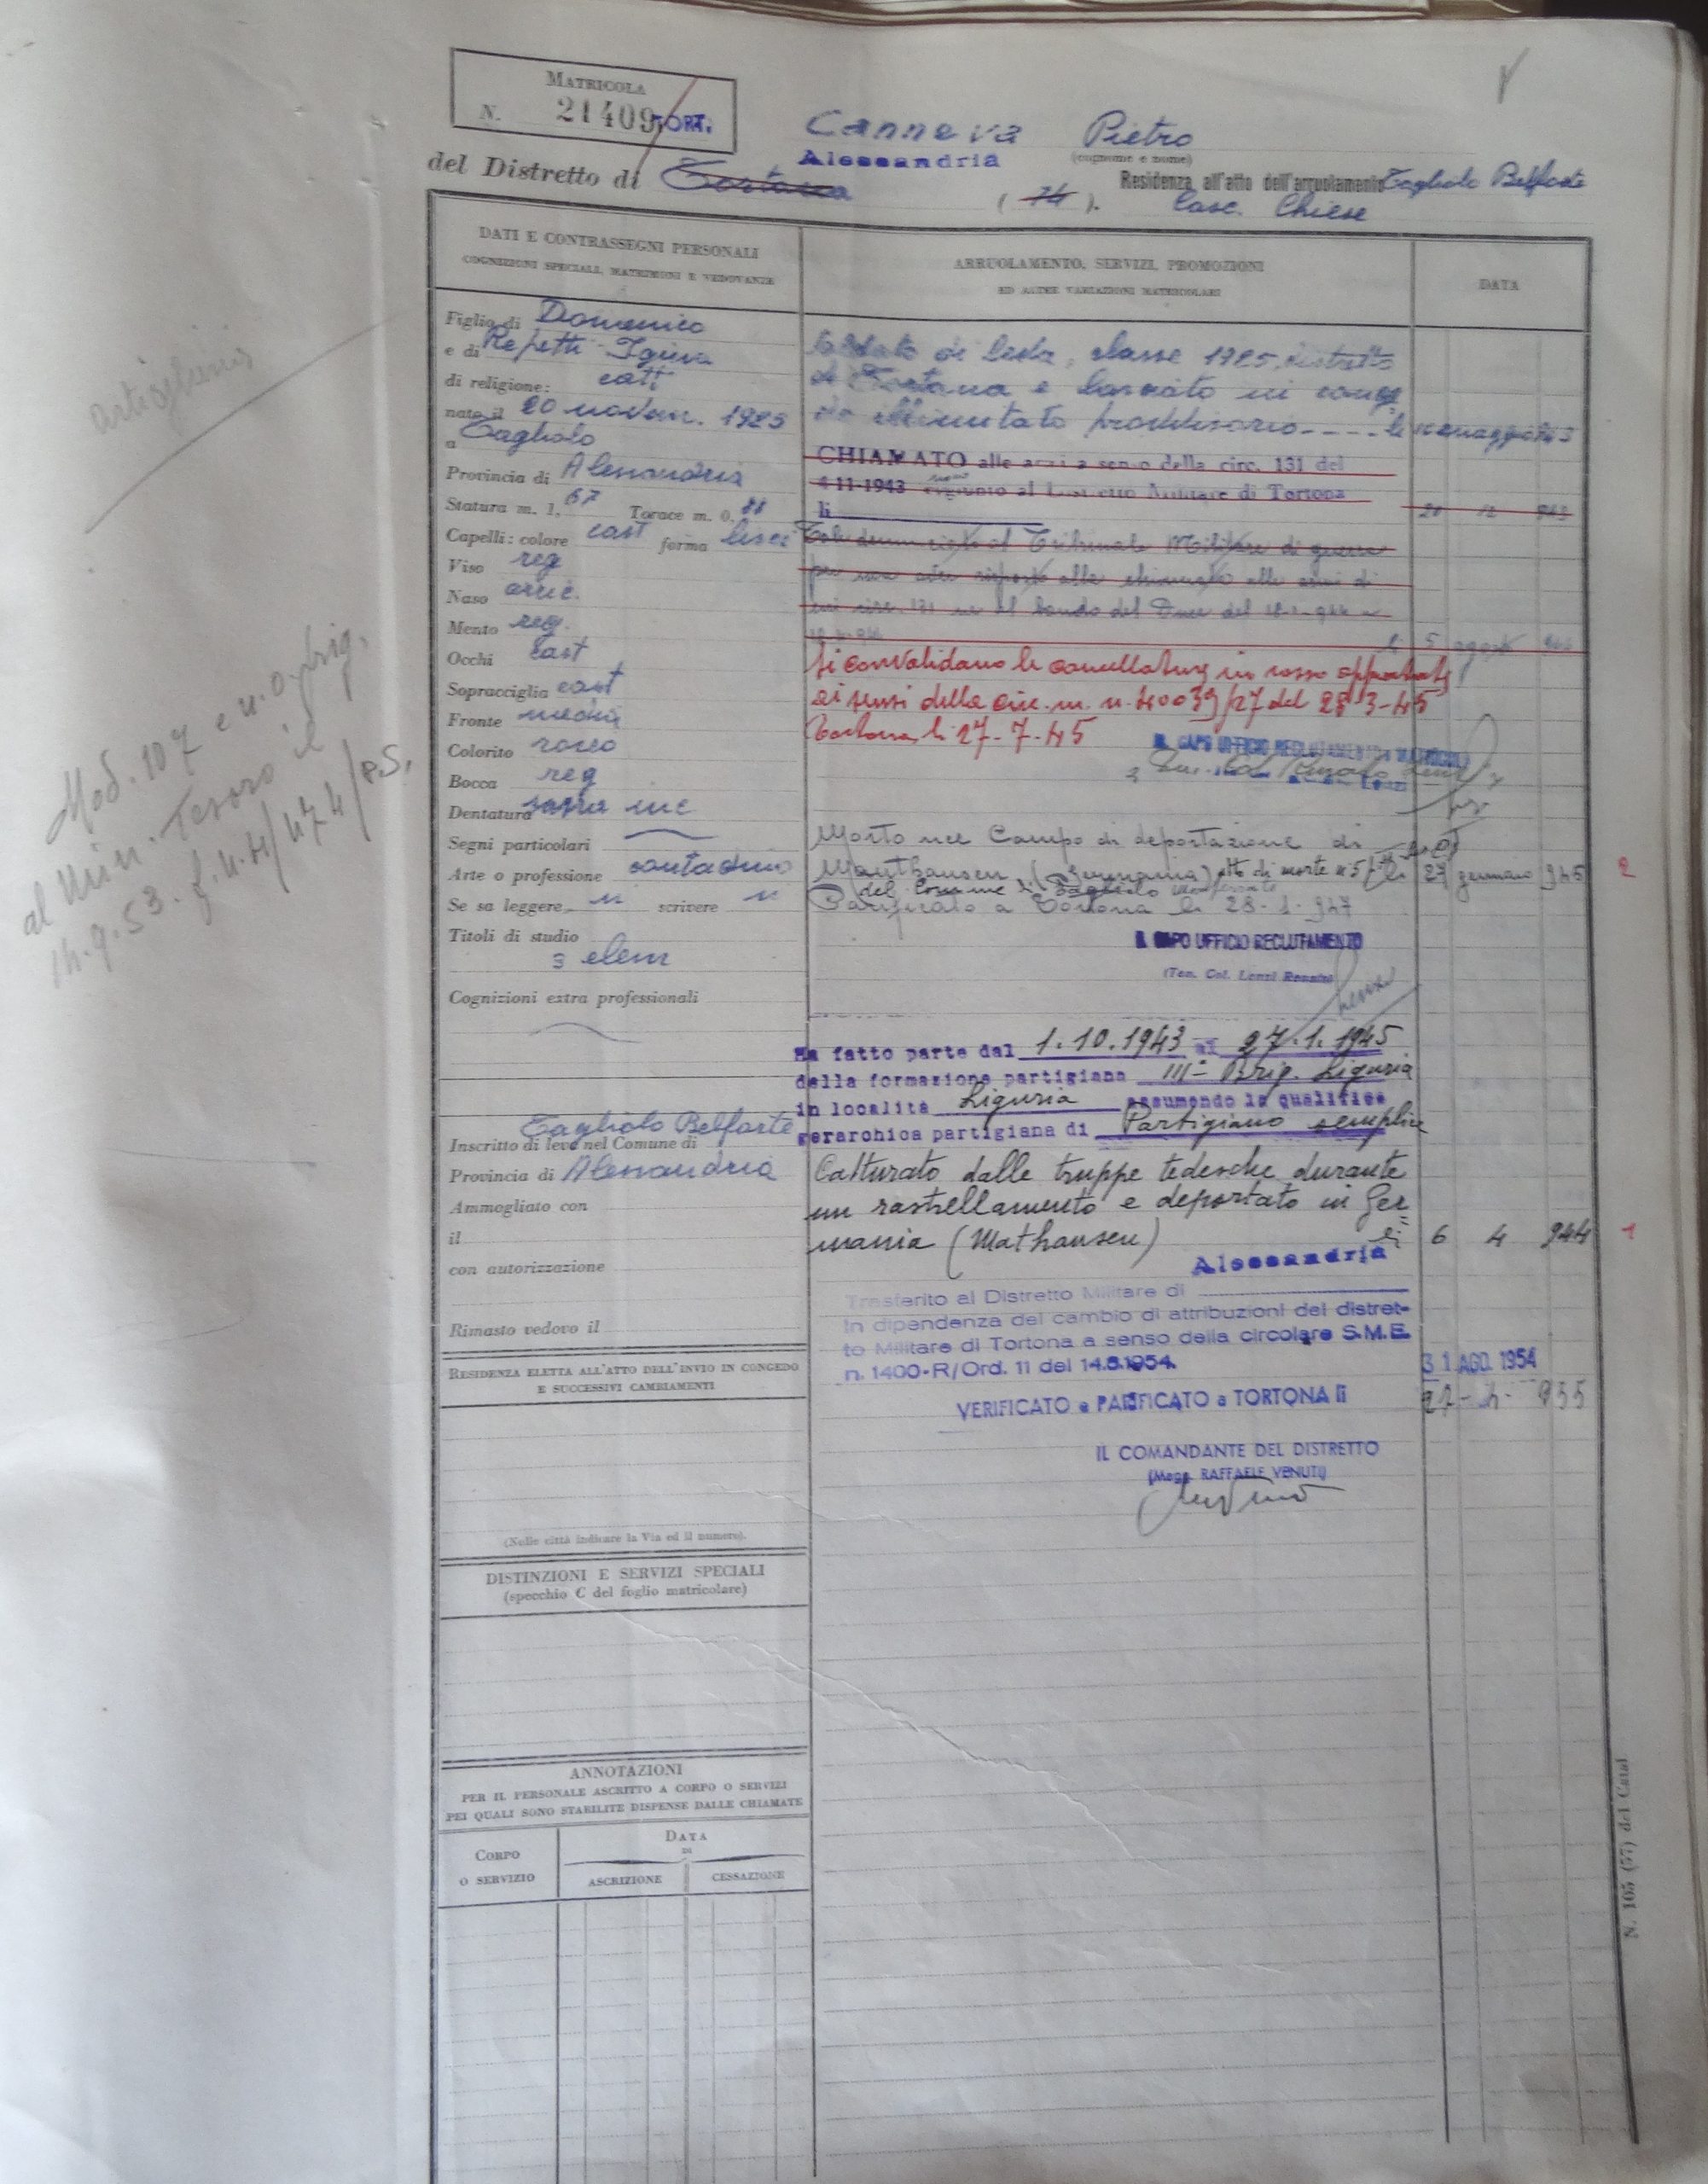 MATRICOLA
N. 21409 TORT.
Canneva Pietro
(cognome e nome)
Alessandria
del Distretto di Tortona
(74).
Residenza all'atto dell'arruolamento Tagliolo Belforte
Casc. Chiese
DATI E CONTRASSEGNI PERSONALI
COGNIZIONI SPECIALI, MATRIMONI E VEDOVANZE
ARRUOLAMENTO, SERVIZI, PROMOZIONI
ED ALTRE VARIAZIONI MATRICOLARI
DATA
Figlio di Domenico
e di Repetti Igina
di religione: catt
nato il 20 novem. 1925
a Tagliolo
Provincia di Alessandria
Statura m. 1, 67 Torace m. 0, 88
Capelli: colore cast forma lisci
Viso reg
Naso
Mento reg.
Occhi cast
Sopracciglia cast
Fronte media
Colorito roseo
Bocca reg
Dentatura sana inc
Segni particolari
Arte o professione contadino
Se sa leggere scrivere
Titoli di studio
3 elem
Cognizioni extra professionali
Inscritto di leva nel Comune di Tagliolo Belforte
Provincia di Alessandria
Ammogliato con
il
con autorizzazione
Rimasto vedovo il
RESIDENZA ELETTA ALL'ATTO DELL'INVIO IN CONGEDO
E SUCCESSIVI CAMBIAMENTI
(Nelle città indicare la Via ed il numero).
DISTINZIONI E SERVIZI SPECIALI
(specchio C del foglio matricolare)
ANNOTAZIONI
PER IL PERSONALE ASCRITTO A CORPO O SERVIZI
PEI QUALI SONO STABILITE DISPENSE DALLE CHIAMATE
CORPO
O SERVIZIO
DATA
DI
ASCRIZIONE
CESSAZIONE
Soldato di leva, classe 1925, distretto
di Tortona e lasciato in conge
do illimitato provvisorio ---- li maggio 943
CHIAMATO alle armi a senso della circ. 131 del
4-11-1943 non giunto al Distretto Militare di Tortona
li
Tale denunciato al Tribunale Militare di guerra
per non aver risposto alla chiamata alle armi di
cui circ. 131 ne al bando del Duce del
li 5 agosto
Si convalidano le cancellature in rosso apportate
ai sensi della circ. m. n. 40039/27 del 28-3-45
Tortona, li 27-7-45
IL CAPO UFFICIO RECLUTAMENTO e MATRICOLA
Morto nel Campo di deportazione di
Mauthausen (Germania) atto di morte n 5 li 27 gennaio 945 2
del Comune di Tagliolo Monferrato
Parificato a Tortona li 28-1-947
IL CAPO UFFICIO RECLUTAMENTO
(Ten. Col. Lenzi Renato)
Ha fatto parte dal 1.10.1943 al 27.1.1945
della formazione partigiana III^a Brig. Liguria
in località Liguria assumendo la qualifica
gerarchica partigiana di Partigiano semplice
Catturato dalle truppe tedesche durante
un rastrellamento e deportato in Ger=
mania (Mathausen) li 6 4 944 1
Alessandria
Trasferito al Distretto Militare di
in dipendenza del cambio di attribuzioni del distret-
to Militare di Tortona a senso della circolare S.M.E.
n. 1400-R/Ord. 11 del 14.8.1954. 31 AGO. 1954
VERIFICATO e PARIFICATO a TORTONA li 27-4-955
IL COMANDANTE DEL DISTRETTO
(Magg. RAFFAELE VENUTI)
N. 105 (57) del Catal
artiglieria
Mod. 107 e n.o. prig.
al Min. Tesoro il
14.9.53. f. n. 41/474/P.S.